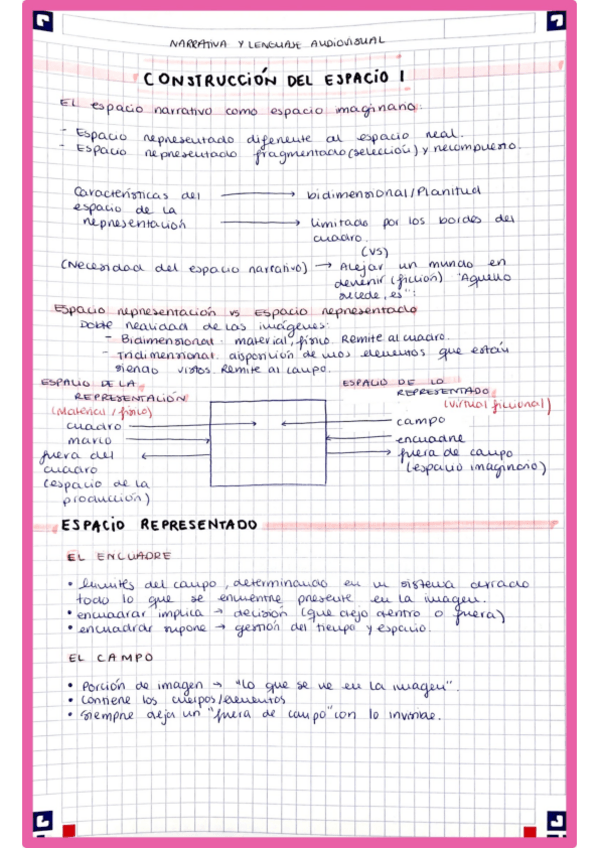 NARRATIVA Y LENGUAJE AUDIOVISUAL
CONSTRUCCIÓN DEL ESPACIO I
El espacio narrativo como espacio imaginario:
- Espacio representado diferente al espacio real.
- Espacio representado fragmentado (selección) y recompuesto.
Características del espacio de la representación
→ bidimensional/Planitud
→ limitado por los bordes del cuadro.
(VS)
(Necesidad del espacio narrativo) → Alejar un mundo en
devenir (ficción) "Aquello
sucede, es":
Espacio representación vs Espacio representado
Doble realidad de las imágenes:
- Bidimensional: material, físico. Remite al cuadro.
- Tridimensional: disposición de unos elementos que están
siendo vistos. Remite al campo.
ESPACIO DE LA
REPRESENTACIÓN
(Material / físico)
cuadro
marco
fuera del
cuadro
(espacio de la
producción)
ESPACIO DE LO
REPRESENTADO
(virtual ficcional)
campo
encuadre
fuera de campo
(espacio imaginario)
ESPACIO REPRESENTADO
EL ENCUADRE
• límites del campo, determinando en un sistema cerrado
todo lo que se encuentre presente en la imagen.
• encuadrar implica → decisión (que dejo dentro o fuera)
• encuadrar supone → gestión del tiempo y espacio.
EL CAMPO
• Porción de imagen → "lo que se ve en la imagen".
• Contiene los cuerpos/elementos
• Siempre deja un "fuera de campo" con lo invisible.